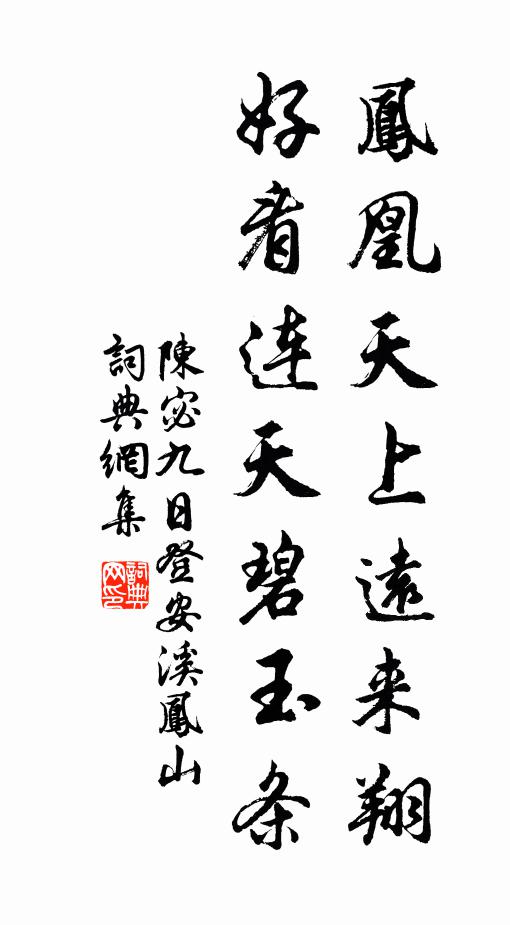 鳳凰天上遠来翔
好看連天碧玉条
陳宓九日登安溪鳳山
詞典網集
詞典网印